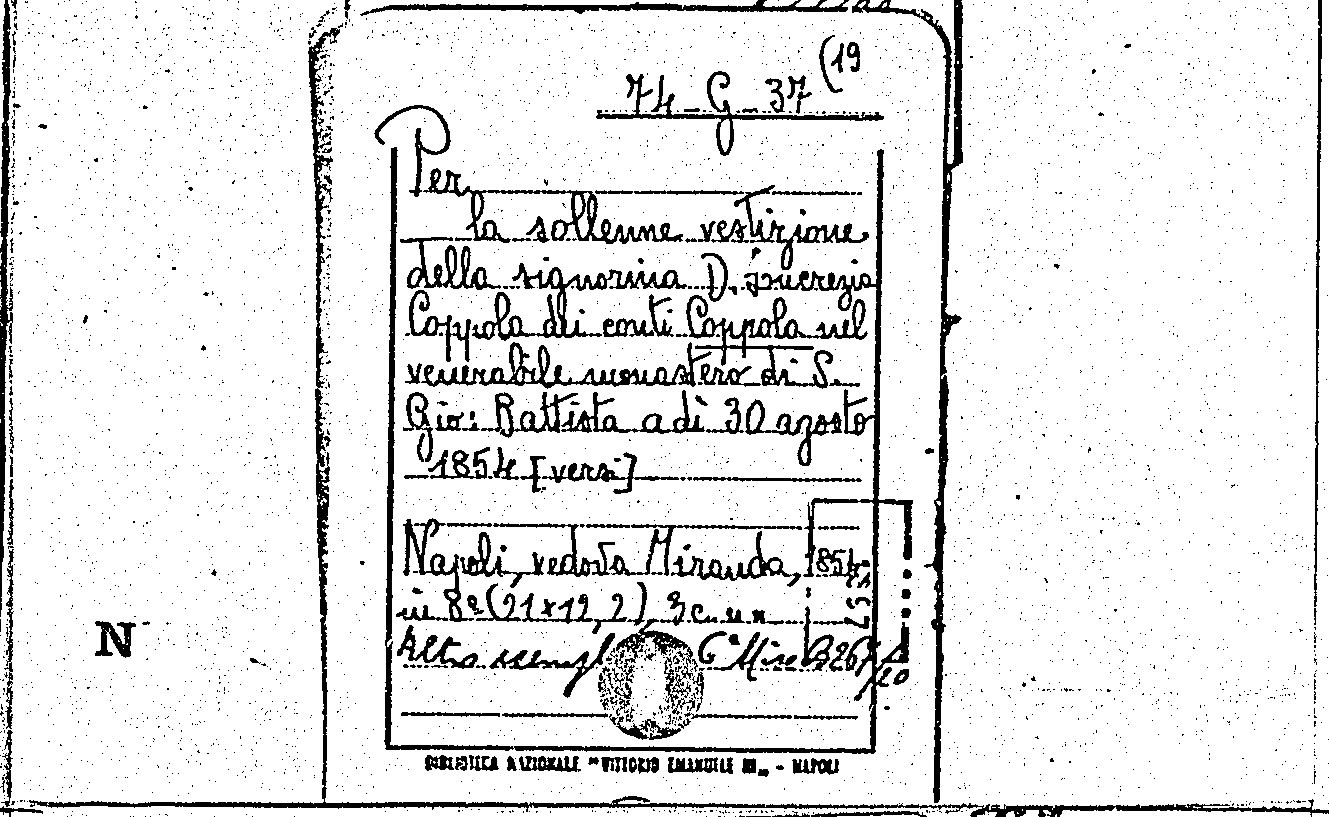 74-G-37 (19
Per
la sollenne vestizione
della signorina D. Lucrezia
Coppola dei conti Coppola nel
venerabile monastero di S.
Gio: Battista a dì 30 agosto
1854 [versi]
Napoli, vedova Miranda, 1854
in 8º (21x12,2), 3 c. n. n.
Altro esempl
N
BIBLIOTECA NAZIONALE "VITTORIO EMANUELE III" - NAPOLI